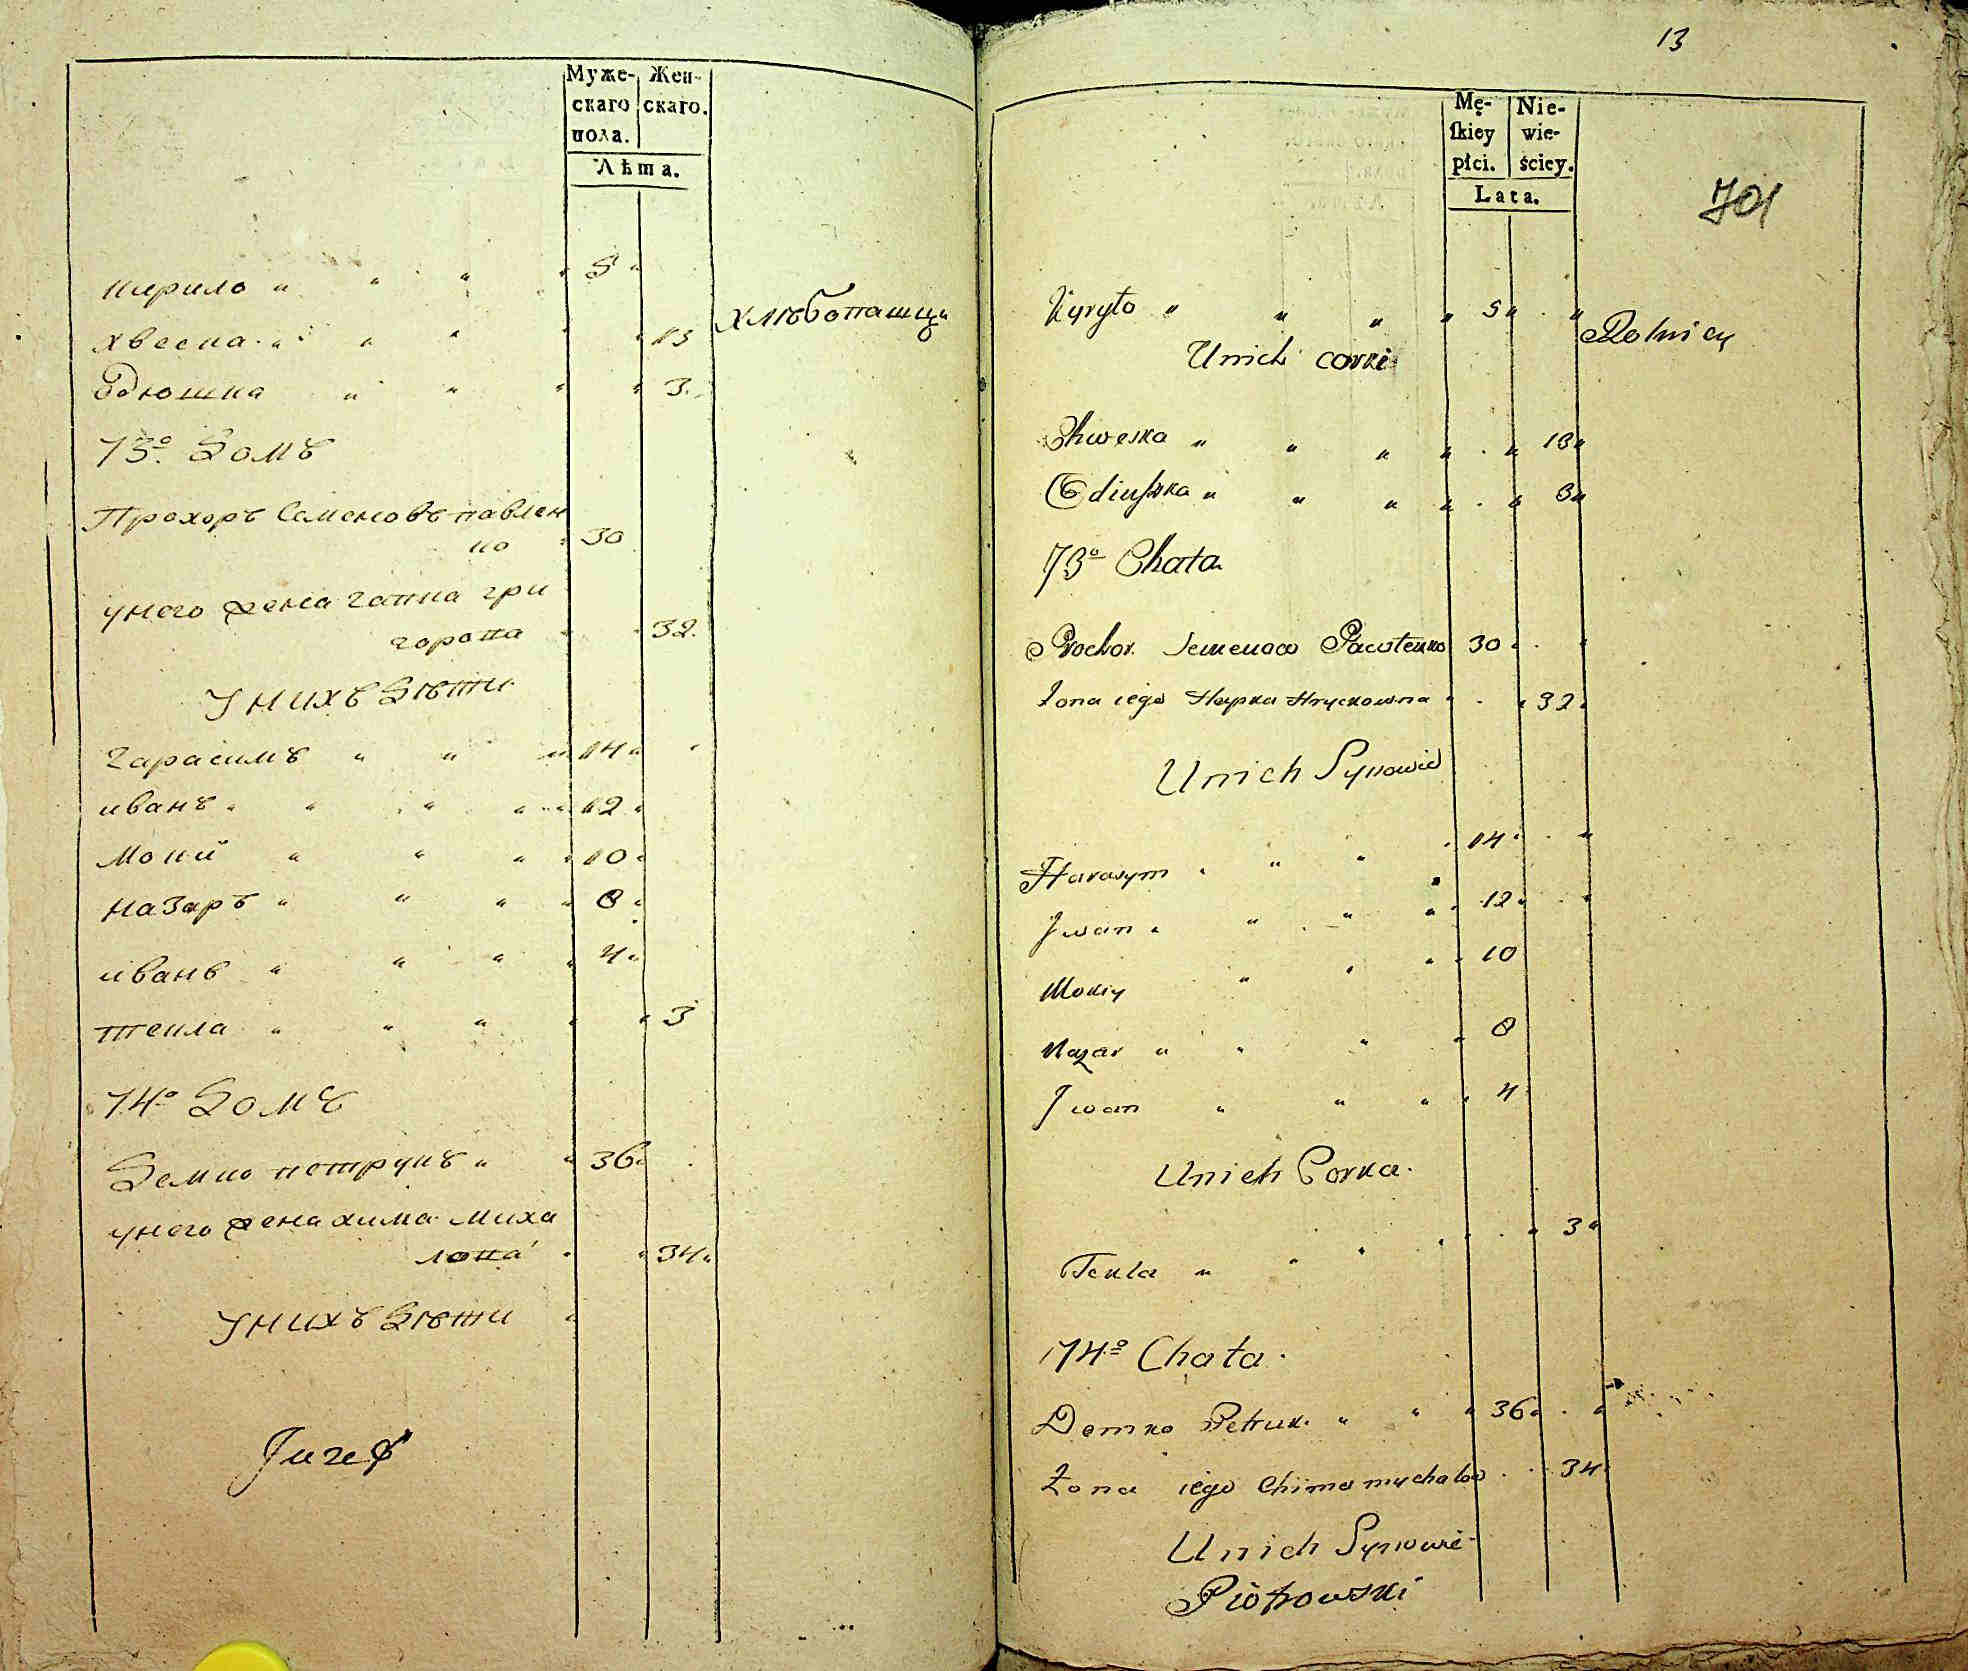 Муже- Жен-
скаго скаго.
пола.
Лѣта.
кирило " " " " 5 "
хвеска " " " " 13 хлѣбопашцы
Әдюшка " " " " 3.
73º Домъ
Прохоръ Семеновъ павлен
ко " 30
унего жена гапка гри
горова " " 32.
Унихъ Дѣти
гарасимъ " " " 14 " "
иванъ " " " " 12 "
Мокій " " " " 10 "
назаръ " " " " 8 "
иванъ " " " " 4 "
текла " " " " " 3
74º Домъ
Демко петрукъ " " 36 "
унего жена хима миха
лова " " 34 "
Унихъ Дѣти "
Juzef
13
Mę- Nie-
ſkiey wie-
płci. ściey.
Lata.
701
Kyryło " " " " 5 " . " Rolnicy
Unich corki
Chweska " " " " . " 13 "
Ediuszka " " " " . " 3 "
73º Chata
Prochor Semenow Pawlenko 30 " . "
Zona iego Hapka Hryckowna " . " 32 "
Unich Synowie
Harasym " " " " 14 " . "
Jwan " " " " 12 " . "
Mokiy " " " " 10
Nazar " " " " 8
Jwan " " " " 4
Unich Corka.
Tekla " " " " . " 3 "
74º Chata.
Demko Petruk. " " " 36 " . "
Zona iego Chima mychałow . . 34 "
Unich Synowie
Piotrowski